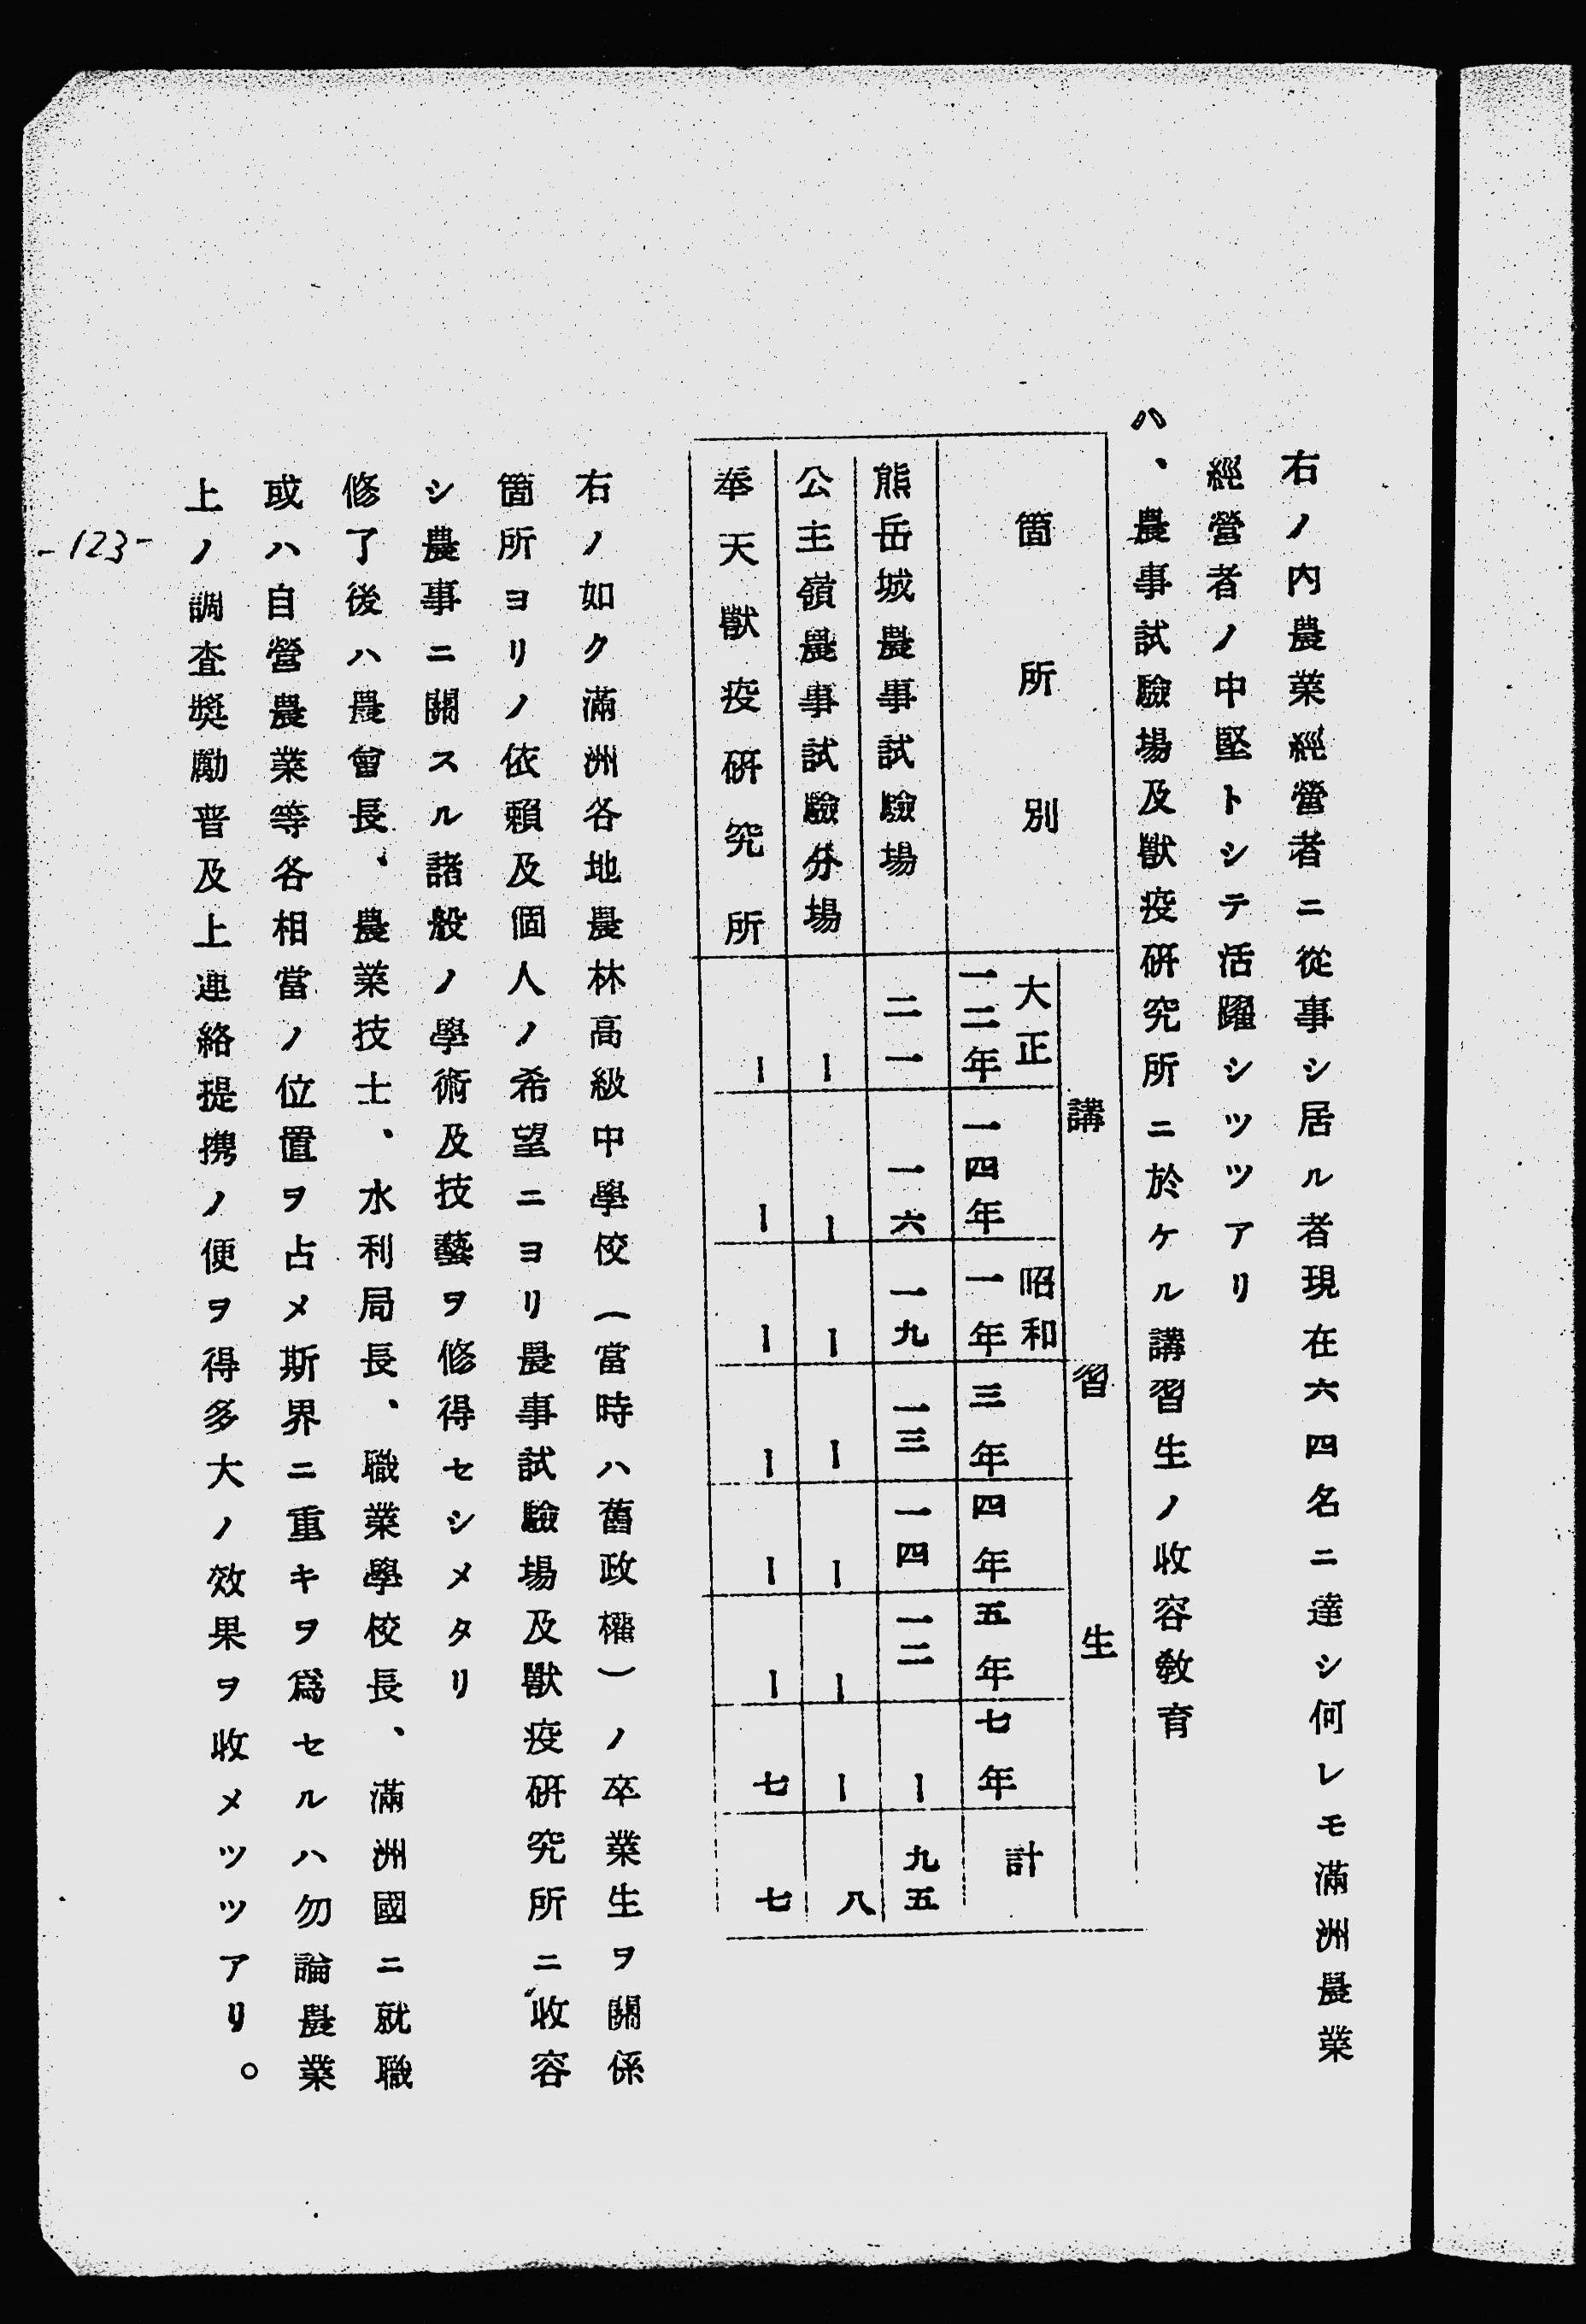 右ノ内農業經營者ニ從事シ居ル者現在六四名ニ達シ何レモ滿洲農業
經營者ノ中堅トシテ活躍シツツアリ
ハ、農事試驗場及獸疫研究所ニ於ケル講習生ノ收容敎育
箇所別
講習生
大正一二年
一四年
昭和一年
三年
四年
五年
七年
計
熊岳城農事試驗場
二一
一六
一九
一三
一四
一二
ー
九五
公主嶺農事試驗分場
ー
ー
ー
ー
ー
ー
ー
八
奉天獸疫研究所
ー
ー
ー
ー
ー
ー
七
七
右ノ如ク滿洲各地農林高級中學校(當時ハ舊政權)ノ卒業生ヲ關係
箇所ヨリノ依賴及個人ノ希望ニヨリ農事試驗場及獸疫研究所ニ收容
シ農事ニ關スル諸般ノ學術及技藝ヲ修得セシメタリ
修了後ハ農會長、農業技士、水利局長、職業學校長、滿洲國ニ就職
或ハ自營農業等各相當ノ位置ヲ占メ斯界ニ重キヲ爲セルハ勿論農業
上ノ調査奬勵普及上連絡提携ノ便ヲ得多大ノ效果ヲ收メツツアリ。
-123-